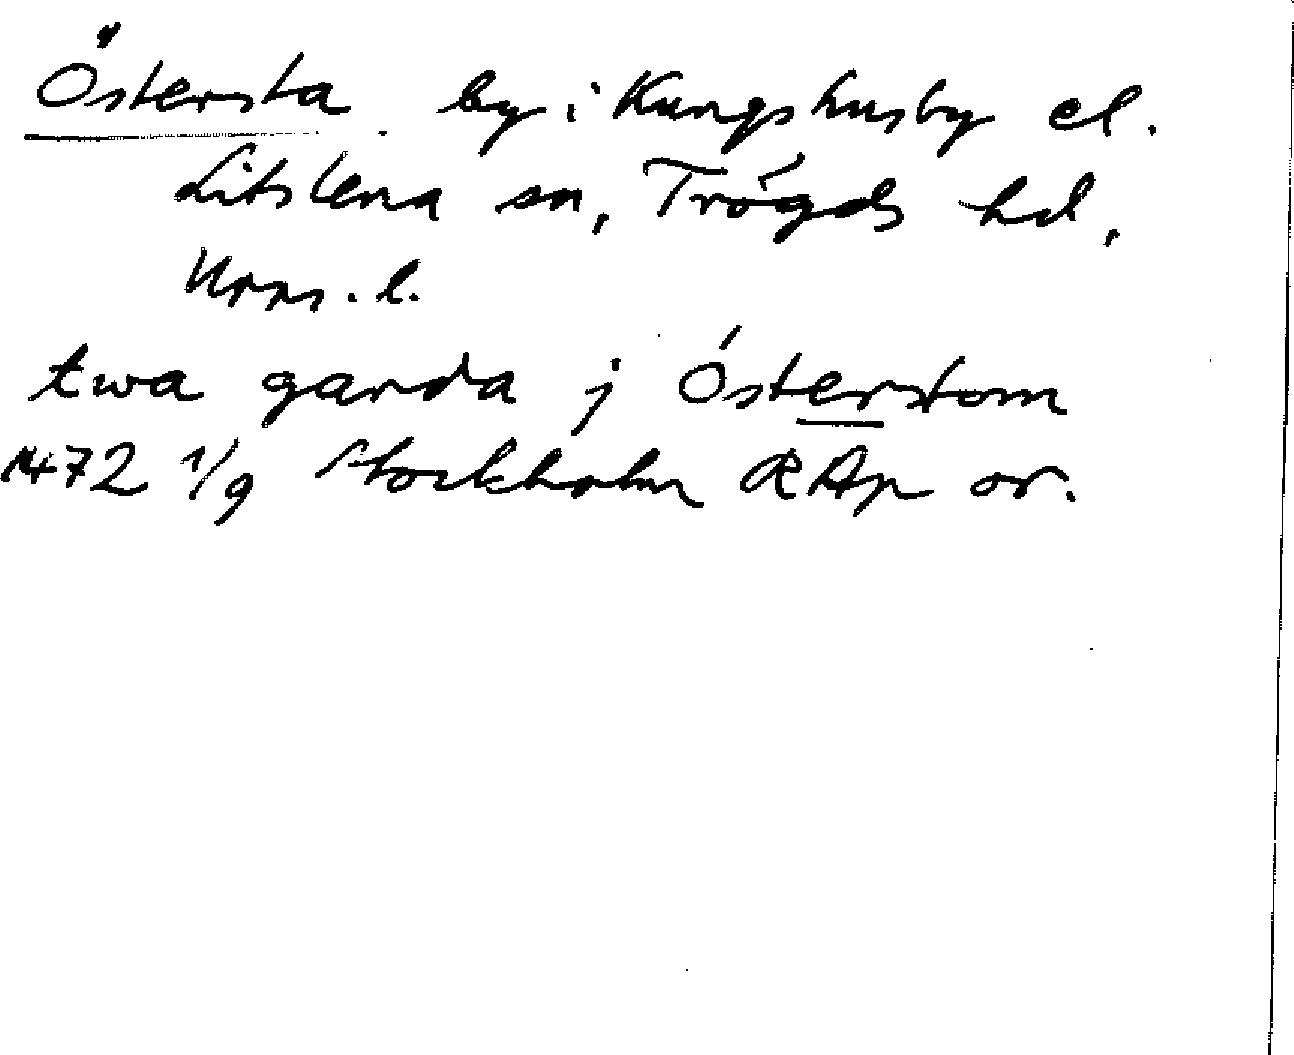 Östersta by i Kungshusby el.
Litslena sn, Trögds hd,
Upps. l.
twa garda j Österstom
1472 1/9 Stockholm RAp or.